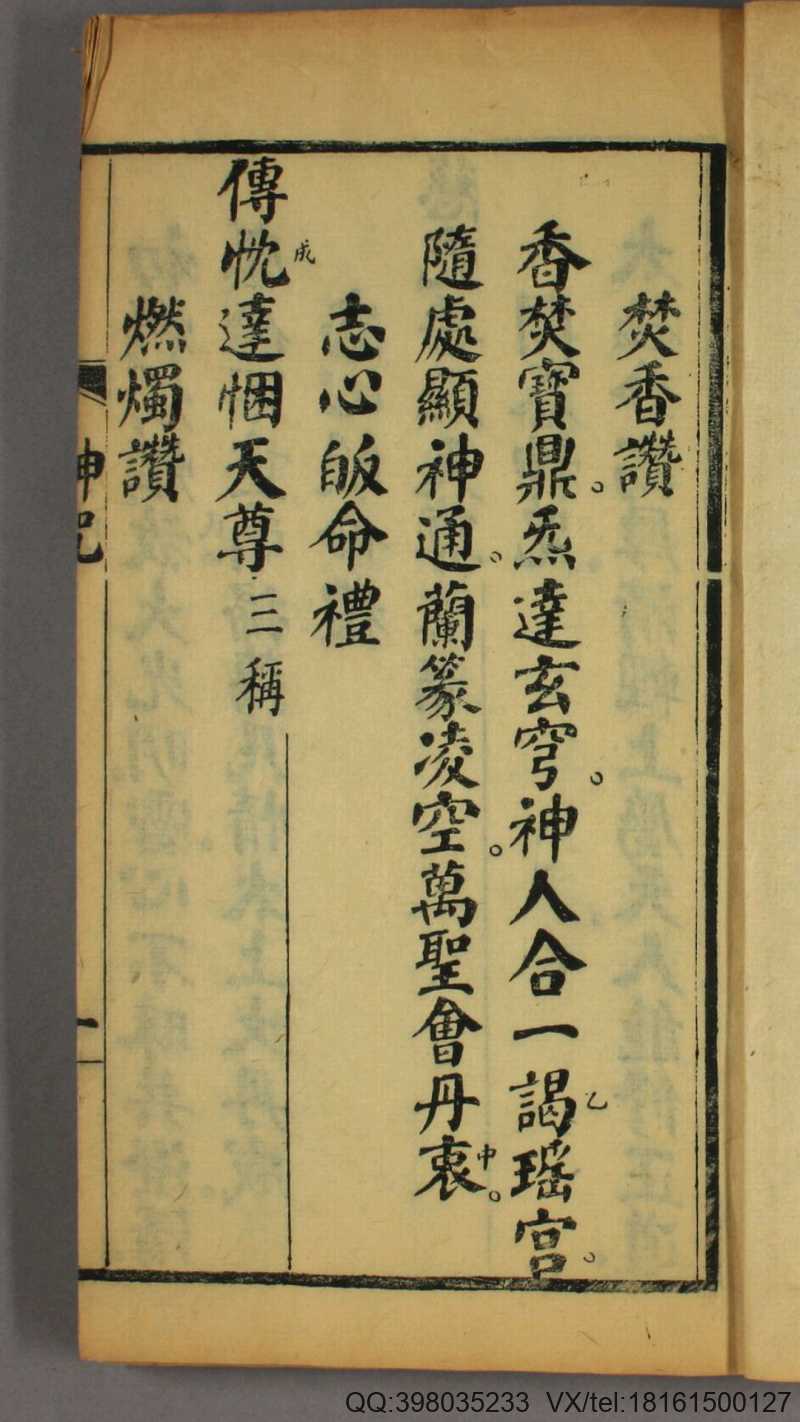 焚香讚
香焚寶鼎。炁達玄穹。神人合一謁乙瑶宫。
隨處顯神通。蘭篆凌空。萬聖會丹衷中。
志心皈命禮
傳忱成達悃天尊三稱
燃燭讚
神咒
一
QQ:398035233 VX/tel:18161500127